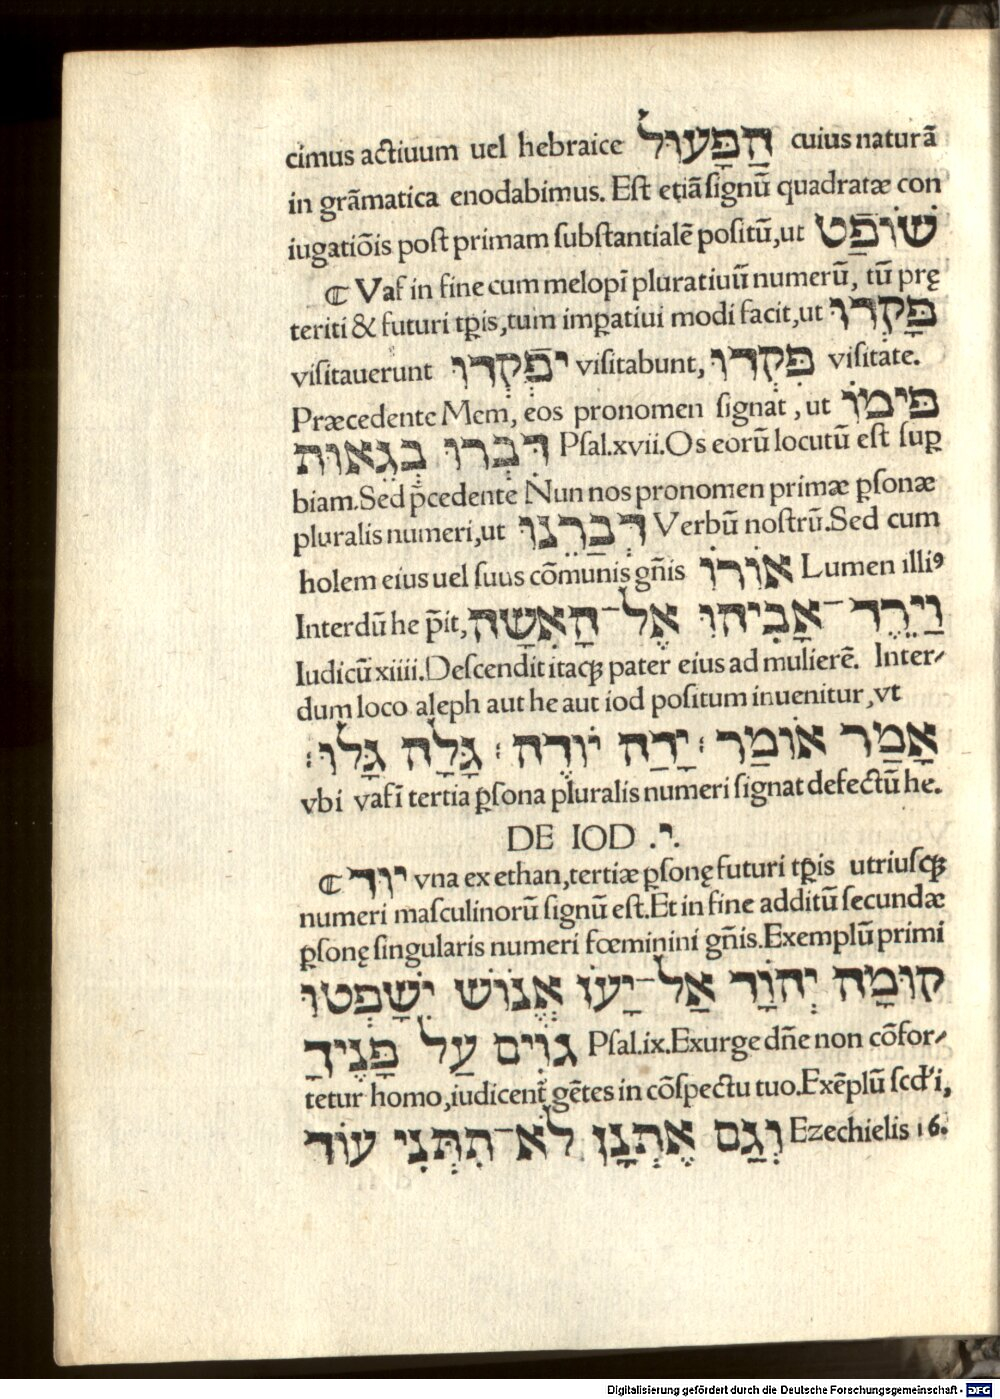 cimus actiuum uel hebraice הַפָּעוּל cuius naturã
in grãmatica enodabimus. Est etiã signũ quadratæ con
iugatiõis post primam substantialẽ positũ, ut שׁוֹפַט
¶ Vaf in fine cum melopĩ pluratiuũ numerũ, tũ pre
teriti & futuri tp̃is, tum imꝑatiui modi facit, ut פָּקְדוּ
visitauerunt יִפְקְדוּ visitabunt, פִּקְדוּ visitate.
Præcedente Mem, eos pronomen signat, ut פִּימוֹ
דִּבְּרוּ בְגֵאוּת Psal.xvii. Os eorũ locutũ est suꝑ
biam. Sed p̃cedente Nun nos pronomen primæ ꝑsonæ
pluralis numeri, ut דְּבָרֵנוּ Verbũ nostrũ. Sed cum
holem eius uel suus cõmunis gñis אוֹרוֹ Lumen illiꝰ
Interdũ he p̃it, וַיֵּרֶד־אָבִיהוּ אֶל־הָאִשָּׁה
Iudicũ xiiii. Descendit itaqꝫ pater eius ad mulierẽ. Inter-
dum loco aleph aut he aut iod positum inuenitur, vt
אָמַר אוֹמַר : יָדַה יוֹדֶה : גָּלָה גָּלוּ :
vbi vaf ĩ tertia ꝑsona pluralis numeri signat defectũ he.
DE IOD .י.
¶ יוּד vna ex ethan, tertiæ ꝑsonę futuri tp̃is utriusqꝫ
numeri masculinorũ signũ est. Et in fine additũ secundæ
ꝑsonę singularis numeri fœminini gñis. Exemplũ primi
קוּמָה יְהוָֹה אַל־יָעוֹ אֱנוֹשׁ יִשָּׁפְטוּ
גוֹיִם עַל פָּנֶיךָ Psal.ix. Exurge dñe non cõfor-
tetur homo, iudicent̃ gẽtes in cõspectu tuo. Exẽplũ scd'i,
וְגַם אֶתְנָן לֹא־תִתְּנִי עוֹד Ezechielis 16.
Digitalisierung gefördert durch die Deutsche Forschungsgemeinschaft - DFG